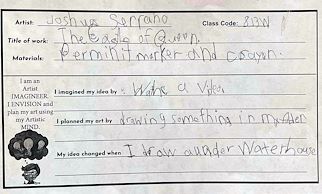 Artist: Joshua Serrano Class Code: 813W
Title of work: The Eagle of Queen.
Materials: Perminit marker and crayon.
I am an
Artist
IMAGINEER.
I ENVISION and
plan my art using
my Artistic
MIND.
I imagined my idea by: Wathc a Viden
I planned my art by drawing something in
My idea changed when I draw a under Waterhouse